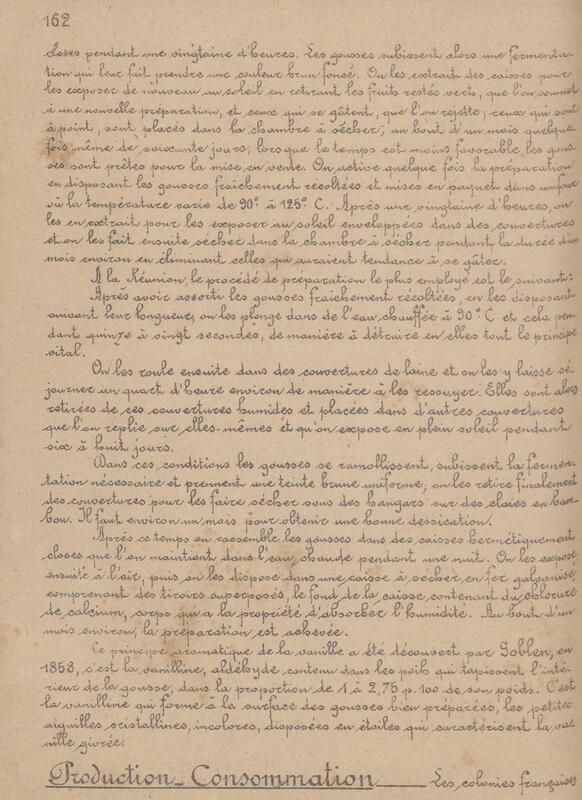 162
closes pendant une vingtaine d'heures. Les gousses subissent alors une fermenta-
tion qui leur fait prendre une couleur brun foncé. On les extrait des caisses pour
les exposer de nouveau au soleil en retirant les fruits restés verts, que l'on soumet
à une nouvelle préparation, et ceux qui se gâtent, que l'on rejette; ceux qui sont
à point, sont placés dans la chambre à sécher; au bout d'un mois quelque
fois même de soixante jours, lorsque le temps est moins favorable, les gous-
ses sont prêtes pour la mise en vente. On active quelque fois la préparation
en disposant les gousses fraîchement récoltées et mises en paquet dans un four
où la température varie de 90° à 125° C. Après une vingtaine d'heures, on
les en extrait pour les exposer au soleil enveloppées dans des couvertures
et on les fait ensuite sécher dans la chambre à sécher pendant la durée d'un
mois environ en éliminant celles qui auraient tendance à se gâter.
A la Réunion, le procédé de préparation le plus employé est le suivant:
Après avoir assorti les gousses fraichement récoltées, en les disposant
suivant leur longueur, on les plonge dans de l'eau chauffée à 90° C et cela pen-
dant quinze à vingt secondes, de manière à détruire en elles tout le principe
vital.
On les roule ensuite dans des couvertures de laine et on les y laisse sé-
journer un quart d'heure environ de manière à les ressuyer. Elles sont alors
retirées de ces couvertures humides et placées dans d'autres couvertures
que l'on replie sur elles-mêmes et qu'on expose en plein soleil pendant
six à huit jours.
Dans ces conditions les gousses se ramollissent, subissent la fermen-
tation nécessaire et prennent une teinte brune uniforme; on les retire finalement
des couvertures pour les faire sécher sous des hangars sur des claies en bam-
bou. Il faut environ un mois pour obtenir une bonne dessication.
Après ce temps on rassemble les gousses dans des caisses hermétiquement
closes que l'on maintient dans l'eau chaude pendant une nuit. On les expose
ensuite à l'air, puis on les dispose dans une caisse à sécher en fer galvanisé
comprenant des tiroirs superposés, le fond de la caisse contenant du chlorure
de calcium, corps qui a la propriété d'absorber l'humidité. Au bout d'un
mois environ, la préparation est achevée.
Ce principe aromatique de la vanille a été découvert par Gobley, en
1858, c'est la vanilline, aldéhyde contenu dans les poils qui tapissent l'inté-
rieur de la gousse, dans la proportion de 1 à 2,75 p. 100 de son poids. C'est
la vanilline qui forme à la surface des gousses bien préparées, les petites
aiguilles cristallines, incolores, disposées en étoiles qui caractérisent la va-
nille givrée.
Production_Consommation ___ Les colonies françaises